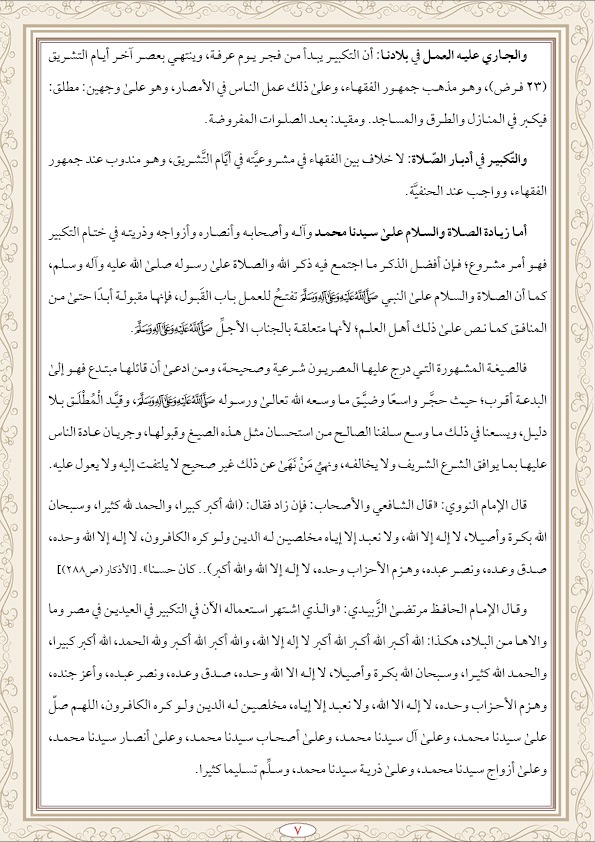 والجاري عليه العمل في بلادنا: أن التكبير يبدأ من فجر يوم عرفة، وينتهي بعصر آخر أيام التشريق
(٢٣ فرض)، وهو مذهب جمهور الفقهاء، وعلىٰ ذلك عمل الناس في الأمصار، وهو علىٰ وجهين: مطلق:
فيكبر في المنازل والطرق والمساجد. ومقيد: بعد الصلوات المفروضة.
والتَّكبير في أدبار الصَّلاة: لا خلاف بين الفقهاء في مشروعيَّته في أيَّام التَّشريق، وهو مندوب عند جمهور
الفقهاء، وواجب عند الحنفيَّة.
أما زيادة الصلاة والسلام علىٰ سيدنا محمد وآله وأصحابه وأنصاره وأزواجه وذريته في ختام التكبير
فهو أمر مشروع؛ فإن أفضل الذكر ما اجتمع فيه ذكر الله والصلاة علىٰ رسوله صلىٰ الله عليه وآله وسلم،
كما أن الصلاة والسلام علىٰ النبي صَلَّى اللهُ عَلَيْهِ وَعَلَى آلِهِ وَسَلَّمَ تفتحُ للعمل باب القَبول، فإنها مقبولة أبدًا حتىٰ من
المنافق كما نص علىٰ ذلك أهل العلم؛ لأنها متعلقة بالجناب الأجلِّ صَلَّى اللهُ عَلَيْهِ وَعَلَى آلِهِ وَسَلَّمَ.
فالصيغة المشهورة التي درج عليها المصريون شرعية وصحيحة، ومن ادعىٰ أن قائلها مبتدع فهو إلىٰ
البدعة أقرب؛ حيث حجَّر واسعًا وضيَّق ما وسعه الله تعالىٰ ورسوله صَلَّى اللهُ عَلَيْهِ وَعَلَى آلِهِ وَسَلَّمَ، وقيَّد الْمُطْلَق بلا
دليل، ويسعنا في ذلك ما وسع سلفنا الصالح من استحسان مثل هذه الصيغ وقبولها، وجريان عادة الناس
عليها بما يوافق الشرع الشريف ولا يخالفه، ونهيُ مَنْ نَهَىٰ عن ذلك غير صحيح لا يلتفت إليه ولا يعول عليه.
قال الإمام النووي: «قال الشافعي والأصحاب: فإن زاد فقال: (الله أكبر كبيرا، والحمد لله كثيرا، وسبحان
الله بكرة وأصيلا، لا إله إلا الله، ولا نعبد إلا إياه مخلصين له الدين ولو كره الكافرون، لا إله إلا الله وحده،
صدق وعده، ونصر عبده، وهزم الأحزاب وحده، لا إله إلا الله والله أكبر).. كان حسنا». [الأذكار (ص٢٨٨)]
وقال الإمام الحافظ مرتضىٰ الزَّبيدي: «والذي اشتهر استعماله الآن في التكبير في العيدين في مصر وما
والاها من البلاد، هكذا: الله أكبر الله أكبر الله أكبر لا إله إلا الله، والله أكبر الله أكبر ولله الحمد، الله أكبر كبيرا،
والحمد الله كثيرا، وسبحان الله بكرة وأصيلا، لا إله الا الله وحده، صدق وعده، ونصر عبده، وأعز جنده،
وهزم الأحزاب وحده، لا إله الا الله، ولا نعبد إلا إياه، مخلصين له الدين ولو كره الكافرون، اللهم صلّ
علىٰ سيدنا محمد، وعلىٰ آل سيدنا محمد، وعلىٰ أصحاب سيدنا محمد، وعلىٰ أنصار سيدنا محمد،
وعلىٰ أزواج سيدنا محمد، وعلىٰ ذرية سيدنا محمد، وسلِّم تسليما كثيرا.
٧